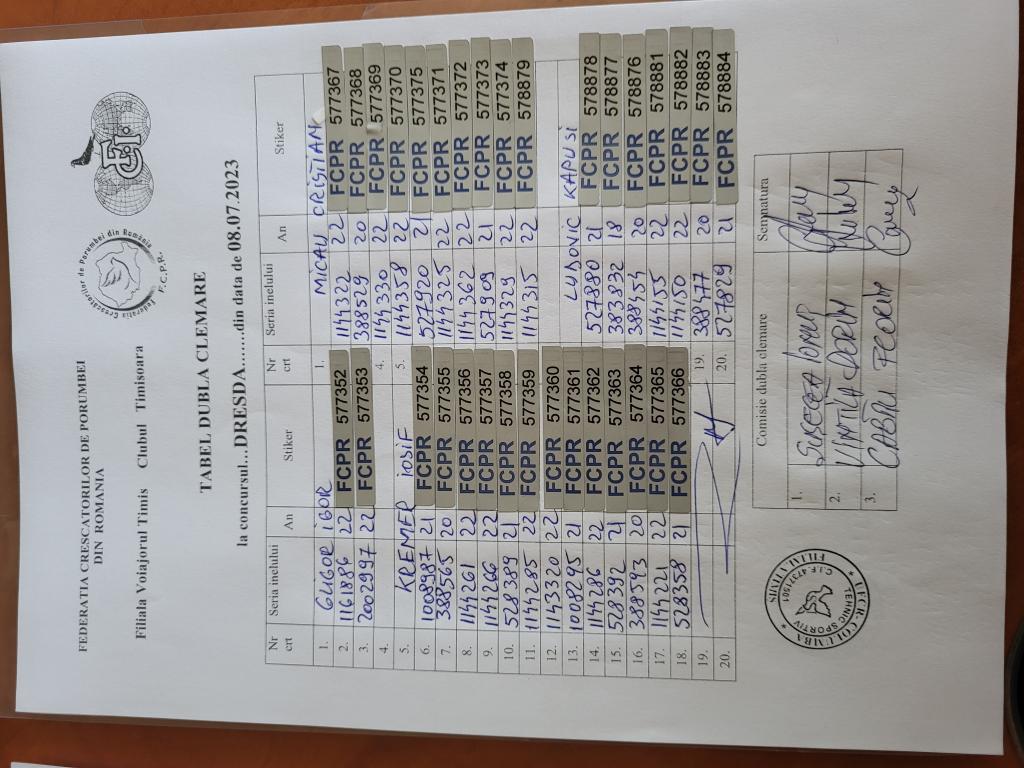 FEDERATIA CRESCATORILOR DE PORUMBEI
DIN ROMANIA
Filiala Voiajorul Timis Clubul Timisoara
Federatia Crescătorilor de Porumbei din România
F.C.P.R.
TABEL DUBLA CLEMARE
la concursul...DRESIDA.........din data de 08.07.2023
Nr crt Seria inelului An Stiker Nr crt Seria inelului An Stiker
1. GLIGOR IGOR 1. MICAU CRISTIAN
2. 1161896 22 FCPR 577352 1144322 22 FCPR 577367
3. 2002997 22 FCPR 577353 388529 20 FCPR 577368
4. 4. 1144330 22 FCPR 577369
5. KREMER IOSIF 5. 1144358 22 FCPR 577370
6. 1008987 21 FCPR 577354 527920 21 FCPR 577375
7. 388565 20 FCPR 577355 1144325 22 FCPR 577371
8. 1144261 22 FCPR 577356 1144362 22 FCPR 577372
9. 1144266 22 FCPR 577357 527909 21 FCPR 577373
10. 528389 21 FCPR 577358 1144329 22 FCPR 577374
11. 1144285 22 FCPR 577359 1144315 22 FCPR 578879
12. 1143320 22 FCPR 577360
13. 1018295 21 FCPR 577361 LUDOVIC KAPUSI
14. 1144286 22 FCPR 577362 527880 21 FCPR 578878
15. 528392 21 FCPR 577363 383832 18 FCPR 578877
16. 388593 20 FCPR 577364 388454 20 FCPR 578876
17. 1144221 22 FCPR 577365 1144155 22 FCPR 578881
18. 528358 21 FCPR 577366 1144150 22 FCPR 578882
19. 19. 388477 20 FCPR 578883
20. 20. 527829 21 FCPR 578884
Comisie dubla clemare Semnatura
1.
2. VINTILA DORIN
3. FLORIN
COLUMBA
FILIALA TIMIS
TEHNIC SPORTIV